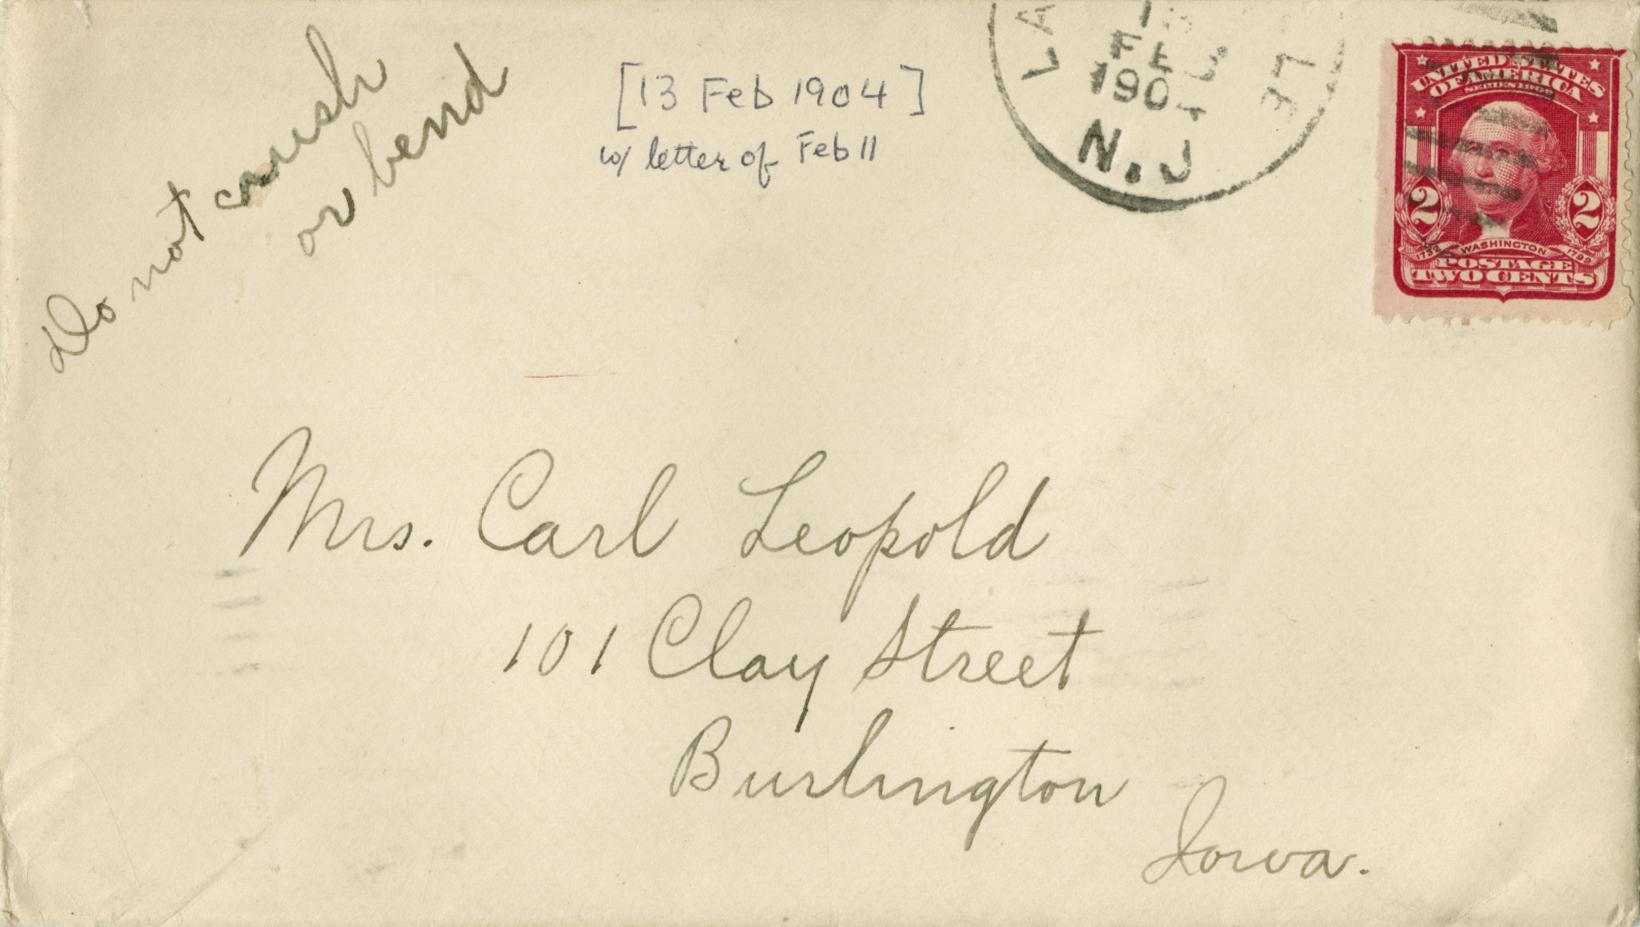 Do not crush
or bend
[13 Feb 1904]
w/ letter of Feb 11
LA
13
FEB
1904
N.J
LE
UNITED STATES
OF AMERICA
SERIES 1902
2 2
WASHINGTON
POSTAGE
TWO CENTS
Mrs. Carl Leopold
101 Clay Street
Burlington
Iowa.